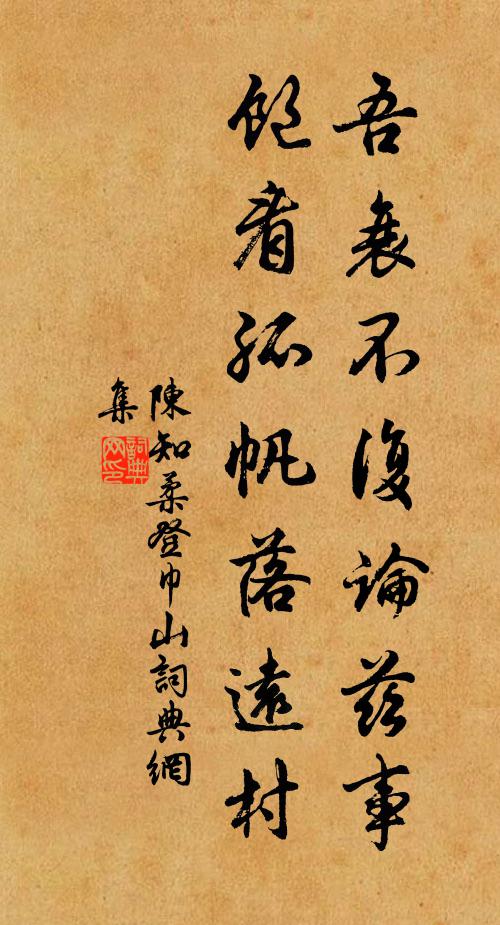 吾衰不復論茲事
飽看孤帆落遠村
陳知柔登巾山詞典網
集
詞典网印